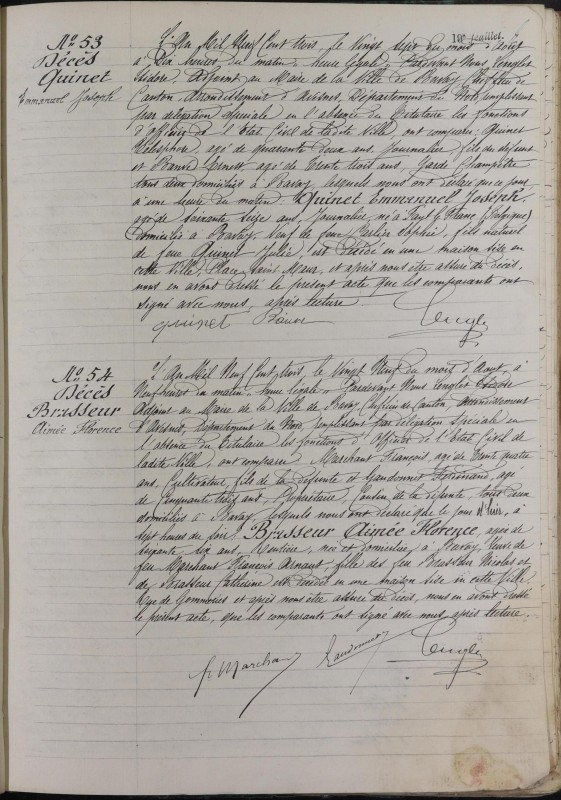 19e feuillet.
No 53
Décès
Quinet
Emmanuel Joseph
L'An Mil Neuf Cent trois, le Vingt sept du mois d'Août
à Dix heures du matin, heure légale, Pardevant Nous Lenglet
Isidore Adjoint au Maire de la Ville de Bavay Chef lieu de
Canton, Arrondissement d'Avesnes, Département du Nord, remplissant
par délégation spéciale en l'absence du Titulaire les fonctions
d'officier de l'Etat Civil de ladite Ville, ont comparu: Quinet
Télesphore, agé de quarante deux ans, Journalier, fils du défunt
et Ernest, agé de trente trois ans, Garde Champêtre
tous deux domiciliés à Bavay, lesquels nous ont déclaré que ce jour,
à une heure du matin, Quinet Emmanuel Joseph,
agé de soixante seize ans, Journalier, né à (Belgique)
domicilié à Bavay, Veuf de feue Sophie, fils naturel
de feue Quinet Julie, est décédé en une maison sise en
cette Ville, Place Saint Maur, et après nous être assuré du décès,
nous en avons dressé le présent acte que les comparants ont
signé avec nous, après lecture
Quinet Lenglet
No 54
Décès
Brasseur
Aimée Florence
L'An Mil Neuf Cent trois, le Vingt Neuf du mois d'Août, à
Neuf heures du matin, heure légale, Pardevant Nous Lenglet Isidore
Adjoint au Maire de la Ville de Bavay, Chef lieu de Canton, Arrondissement
d'Avesnes, Département du Nord, remplissant par délégation Spéciale en
l'absence du Titulaire les fonctions d'Officier de l'Etat Civil de
ladite Ville, ont comparu: Marchant François, agé de trente quatre
ans, Cultivateur, fils de la défunte et Gaudonnet Ferdinand, agé
de cinquante trois ans, Propriétaire, de la défunte, tous deux
domiciliés à Bavay, lesquels nous ont déclaré que le jour d'hier, à
sept heures du soir, Brasseur Aimée Florence, agée de
septante dix ans, Rentière, née et domiciliée à Bavay, Veuve de
feu Marchant François Arnaut, fille des feu Brasseur Nicolas et
de Brasseur Catherine est décédée en une maison sise en cette Ville
Rue de Gommeries et après nous être assuré du décès, nous en avons dressé
le présent acte, que les comparants ont signé avec nous après lecture.
f. Marchant Gaudonnet Lenglet